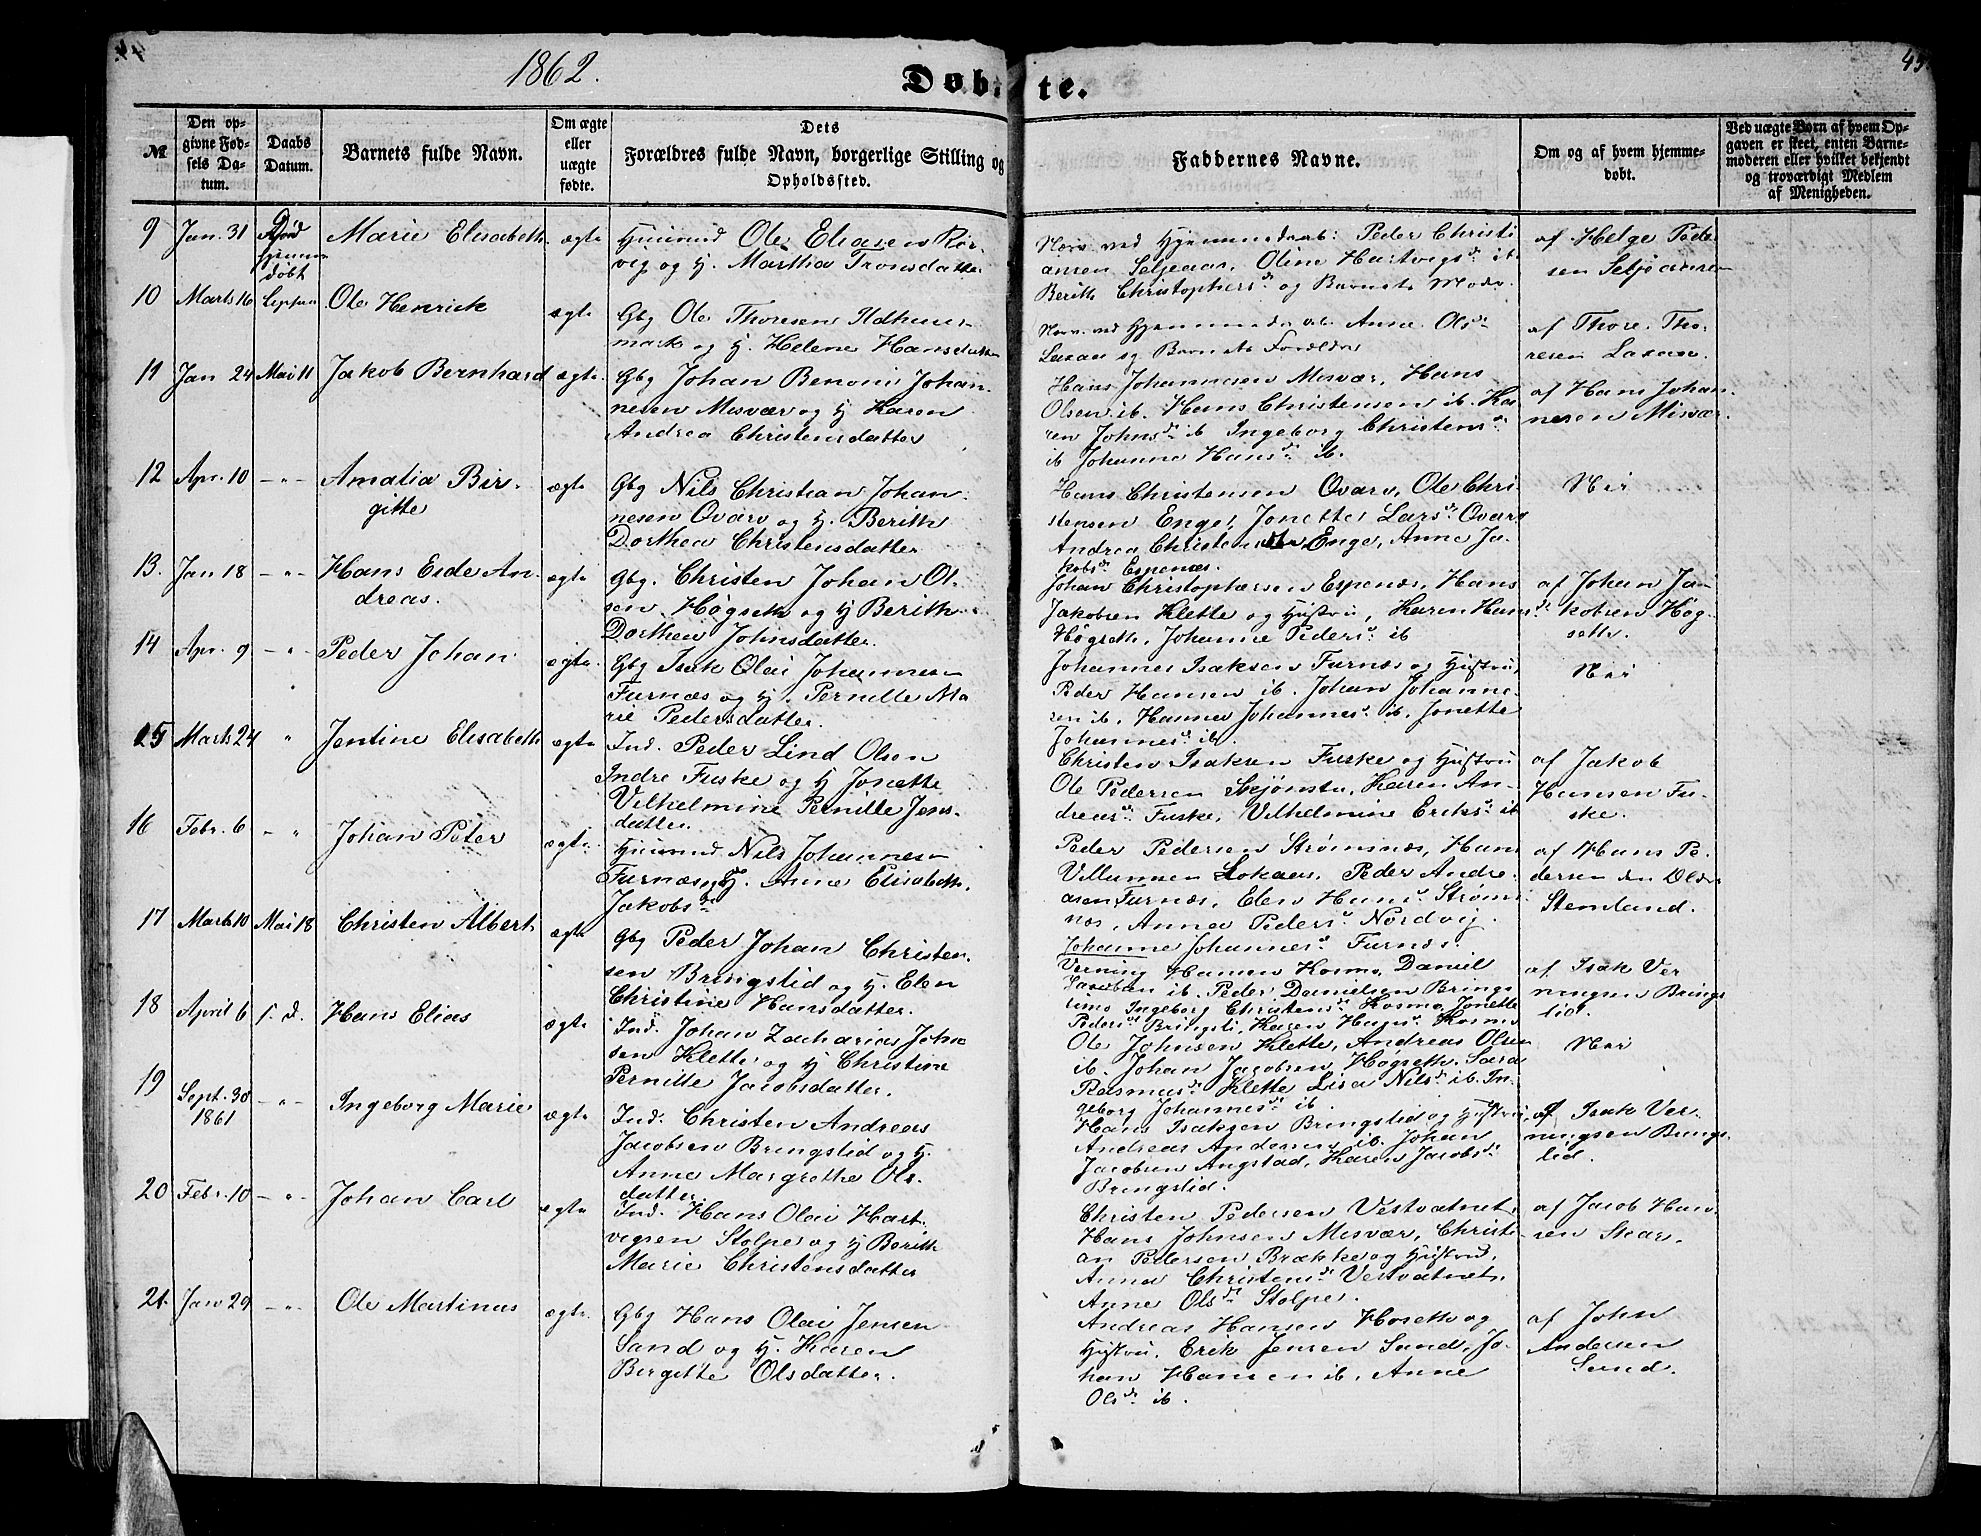 1862.
Døbte.
45
№
Den opgivne Fødsels Datum.
Daabs Datum.
Barnets fulde Navn.
Om ægte eller uægte fødte.
Dets Forældres fulde Navn, borgerlige Stilling og Opholdssted.
Faddernes Navne.
Om og af hvem hjemmedøbt.
Ved uægte Børn af hvem Opgaven er skeet, enten Barnemoderen eller hvilket bekjendt og troværdigt Medlem af Menigheden.
9 Jan. 31 Død Hjemmedøbt Marie Elisabeth ægte
Huusmd Ole Eliasen Rør-
vig og H. Marthia Tronsdatter
Nærv. ved Hjemmedaab: Peder Christi-
ansen Seljeaas, Oline Hartvigsd. ib.
Berith Christophersd. og Barnets Moder
af Helge Peder-
sen Seljeaasen
10 Marts 16 Ole Henrick ægte
Gbg Ole Thoresen Ildhuus-
mark og H. Helene Hansdatter
Nærv. ved Hjemmedaab Anne Olsd.
Laxaa og Barnets Forældre
af Thore Tho-
resen Laxaa.
11 Jan 24 Mai 11 Jakob Bernhard ægte
Gbg Johan Benoni Johan-
nesen Misvær og H Karen
Andrea Christensdatter
Hans Johannesen Misvær, Hans
Olsen ib. Hans Christensen ib. Ka-
ren Johnsd. ib Ingeborg Christensd.
ib Johanna Hansd. ib.
af Hans Johan-
nesen Misvær
12 Apr. 10 -"- Amalia Bir-
gitte ægte
Gbg Nils Christian Johan-
nesen Qvarv og H. Berith
Dorthea Christensdatter
Hans Christensen Qvarv, Ole Chri-
stensen Enge, Jonette Larsd. Qvarv
Andrea Christensdtr Enge, Anne Ja-
kobsd. Espenæs.
Nei
13. Jan 18 -"- Hans Eide An-
dreas. ægte
Gbg. Christen Johan Ol-
sen Høgseth og H Berith
Dorthea Johnsdatter.
Johan Christophersen Espenæs, Hans
Jakobsen Klette og Hustru, Karen Hansd.
Høgseth, Johanne Pedersd. ib
af Johan Ja-
kobsen Høg-
seth.
14 Apr. 9 -"- Peder Johan ægte
Gbg Isak Olai Johannesen
Furnæs og H. Pernille Ma-
rie Pedersdatter.
Johannes Isaksen Furnæs og Hustru,
Peder Hansen ib. Johan Johanne-
sen ib, Hanna Johannesd. ib. Jonette
Johannesd. ib.
Nei
15 Marts 24 " Jentine Elisabeth ægte
Ind. Peder Lind Olsen
Indre Fuske og H Jonette
Vilhelmine Pernille Jens-
datter.
Christen Isaksen Fuske og Hustru
Ole Pedersen Skjønstu, Karen An-
dreasd. Fuske, Vilhelmine Eriksd. ib
af Jakob
Hansen Fu-
ske.
16 Febr. 6 -"- Johan Peter ægte
Huusmd Nils Johannesen
Furnæs og H. Anne Elisabeth
Jakobsd.
Peder Pedersen Strømnæs, Hans
Villumsen Lokaas, Peder Andre-
asen Furnæs, Elen Hansd. Strøm-
næs, Anna Pedersd. Nordvig.
Johanne Johannesd. Furnæs.
af Hans Pe-
dersen den Ældre
Stemland.
17 Marts 10 Mai 18 Christen Albert ægte
Gbg Peder Johan Christen-
sen Bringslid og H. Elen
Christine Hansdatter.
Verning Hansen Kosmo, Daniel
Jacobsen ib. Peder Danielsen Brings-
limo Ingeborg Christensd. Kosmo Jonette
Pedersd. Bringsli, Karen Hansd. Kosmo
af Isak Ver-
ningsen Brings-
lid.
18 April 6 s. d. Hans Elias ægte
Ind. Johan Zacharias John-
sen Klette og H Christine
Pernille Jacobsdatter.
Ole Johnsen Klette, Andreas Olsen
ib. Johan Jacobsen Høgseth. Sara
Rasmusd. Klette Lisa Nilsd. ib. In-
geborg Johannesd. ib.
Nei
19 Sept. 30
1861 -"- Ingeborg Marie ægte
Ind. Christen Andreas
Jacobsen Bringslid og H.
Anne Margrethe Ols-
datter.
Hans Isaksen Bringslid og Hustru,
Andreas Andersen ib. Johan
Jacobsen Angstad, Karen Jacobsd.
Bringslid.
af Isak Ver-
ningsen Brings-
lid.
20 Febr. 10 -"- Johan Carl ægte
Ind. Hans Olai Hart-
vigsen Stolpe og H Berith
Marie Christensdatter
Christen Pedersen Vestvatnet,
Hans Johnsen Misvær, Christi-
an Pedersen Brække og Hustru,
Anna Christensd. Vestvatnet,
Anne Olsd. Stolpe.
af Jacob Han-
sen Skar.
21. Jan 29 -"- Ole Martinus ægte
Gbg Hans Olai Jensen
Sand og H. Karen
Birgitte Olsdatter.
Andreas Hansen Hoseth og
Hustru, Erik Jensen Sand, Jo-
han Hansen ib, Anne
Olsd. ib.
af John
Andersen
Sand.